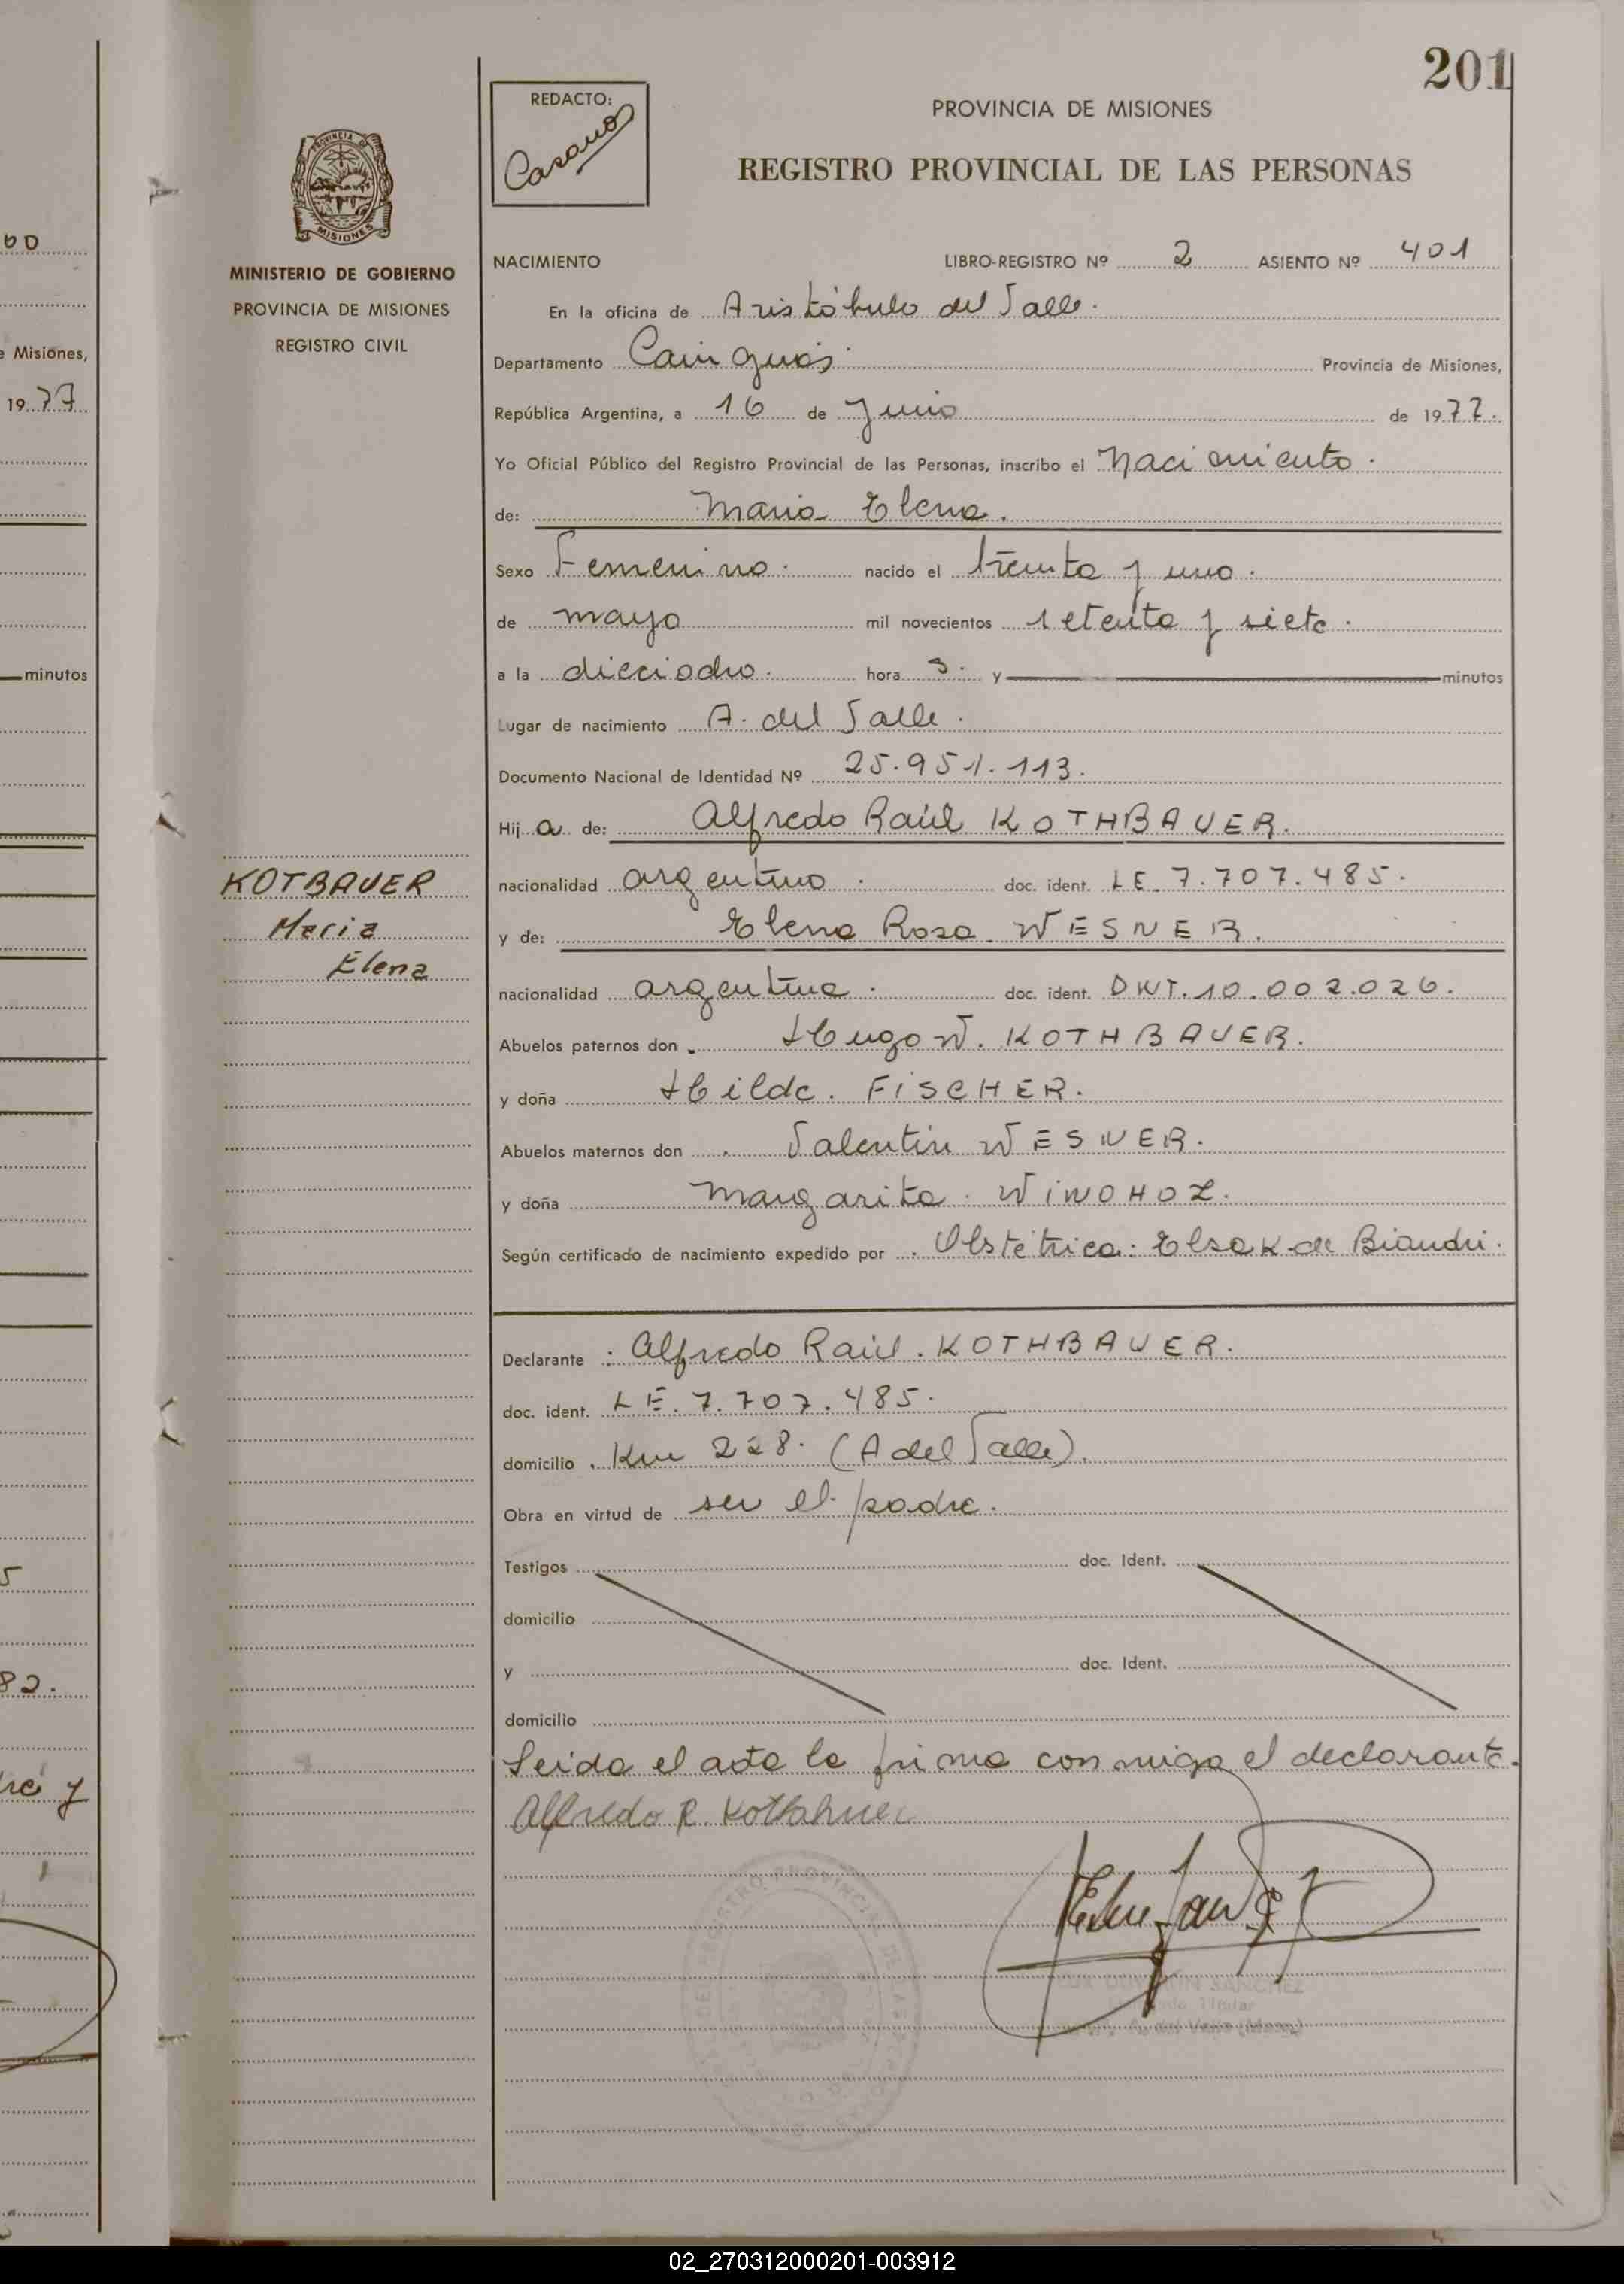 201
REDACTO:
Casano
PROVINCIA DE MISIONES
REGISTRO PROVINCIAL DE LAS PERSONAS
PROVINCIA DE
MISIONES
MINISTERIO DE GOBIERNO
PROVINCIA DE MISIONES
REGISTRO CIVIL
NACIMIENTO LIBRO-REGISTRO Nº 2 ASIENTO Nº 401
En la oficina de Aristóbulo del Valle.
Departamento Cainguás. Provincia de Misiones,
República Argentina, a 16 de Junio de 1977.
Yo Oficial Público del Registro Provincial de las Personas, inscribo el Nacimiento.
de: Maria Elena.
Sexo Femenino. nacido el treinta y uno.
de mayo mil novecientos setenta y siete.
a la dieciocho. hora s. y minutos
Lugar de nacimiento A. del Valle.
Documento Nacional de Identidad Nº 25.951.113.
Hij a de: Alfredo Raúl KOTHBAUER.
nacionalidad argentino. doc. ident. LE. 7.707.485.
y de: Elena Rosa. WESNER.
nacionalidad argentina. doc. ident. DNI. 10.002.026.
Abuelos paternos don Hugo W. KOTHBAUER.
y doña Hilda. FISCHER.
Abuelos maternos don Valentin WESNER.
y doña Margarita. WINDHOZ.
Según certificado de nacimiento expedido por Obstétrica: Elsa K. de Bianchi.
KOTBAUER
Maria
Elena
Declarante: Alfredo Raúl. KOTHBAUER.
doc. ident. LE. 7.707.485.
domicilio. Km 228. (A del Valle).
Obra en virtud de ser el padre.
Testigos doc. Ident.
domicilio
y doc. Ident.
domicilio
Leida el acta la firma conmigo el declarante.
Alfredo R. Kothbauer
SANCHEZ
Titular
A. del Valle (Mnes)
60
e Misiones,
1977
minutos
5
82.
y
02_270312000201-003912